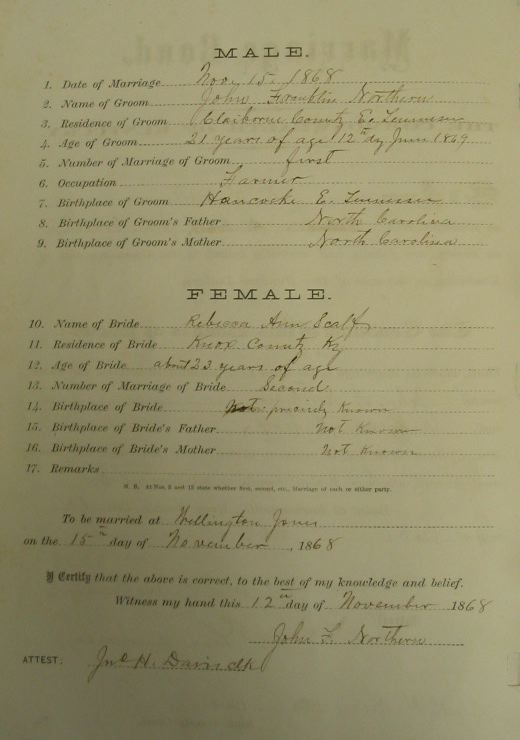 MALE.
1. Date of Marriage Nov. 15. 1868
2. Name of Groom John Franklin Northern
3. Residence of Groom Claiborne County E. Tennessee
4. Age of Groom 21 years of age 12th dy June 1869
5. Number of Marriage of Groom first
6. Occupation Farmer
7. Birthplace of Groom Hancocke E. Tennessee
8. Birthplace of Groom's Father North Carolina
9. Birthplace of Groom's Mother North Carolina
FEMALE.
10. Name of Bride Rebecca Ann Scalf
11. Residence of Bride Knox County Ky
12. Age of Bride about 23 years of age
13. Number of Marriage of Bride Second
14. Birthplace of Bride Not precisely Known
15. Birthplace of Bride's Father Not Known
16. Birthplace of Bride's Mother Not Known
17. Remarks
N. B. At Nos. 5 and 13 state whether first, second, etc., Marriage of each or either party.
To be married at Wellington Jones
on the 15th day of November, 1868
I Certify that the above is correct, to the best of my knowledge and belief.
Witness my hand this 12th day of November 1868
John F. Northern
ATTEST: Jno H. Davis clk